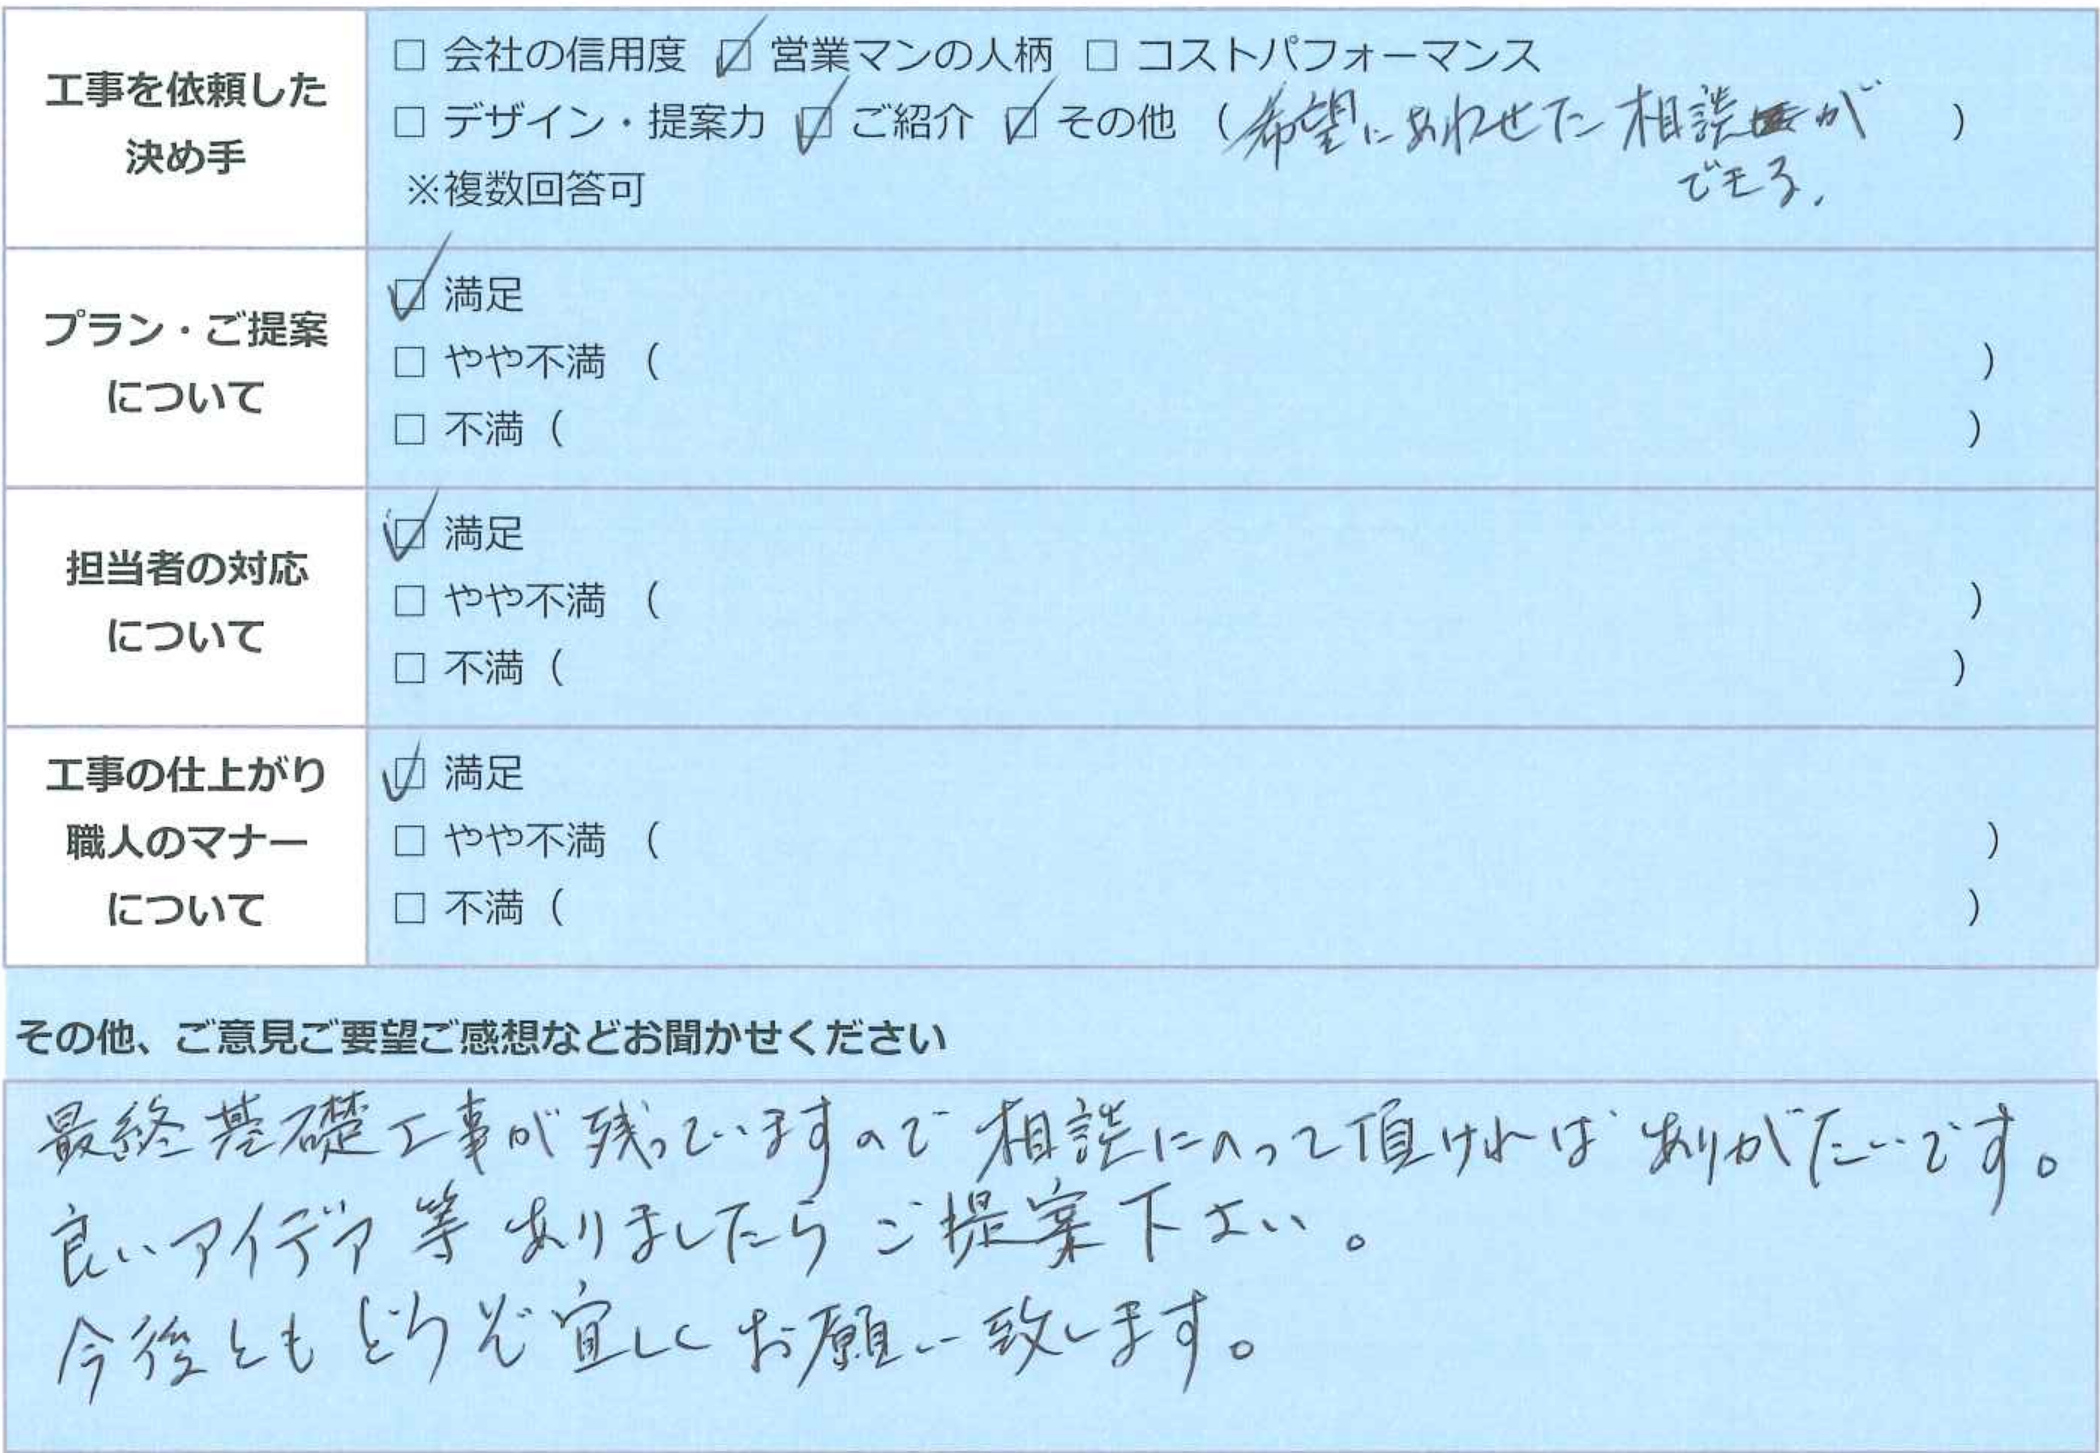 工事を依頼した
決め手
□ 会社の信用度 ☑ 営業マンの人柄 □ コストパフォーマンス
□ デザイン・提案力 ☑ ご紹介 ☑ その他 （希望にあわせた相談が ）
できる.
※複数回答可
プラン・ご提案
について
☑ 満足
□ やや不満 （ ）
□ 不満（ ）
担当者の対応
について
☑ 満足
□ やや不満 （ ）
□ 不満（ ）
工事の仕上がり
職人のマナー
について
☑ 満足
□ やや不満 （ ）
□ 不満（ ）
その他、ご意見ご要望ご感想などお聞かせください
最終基礎工事が残っていますので相談にのって頂ければありがたいです。
良いアイデア等ありましたらご提案下さい。
今後ともどうぞ宜しくお願い致します。